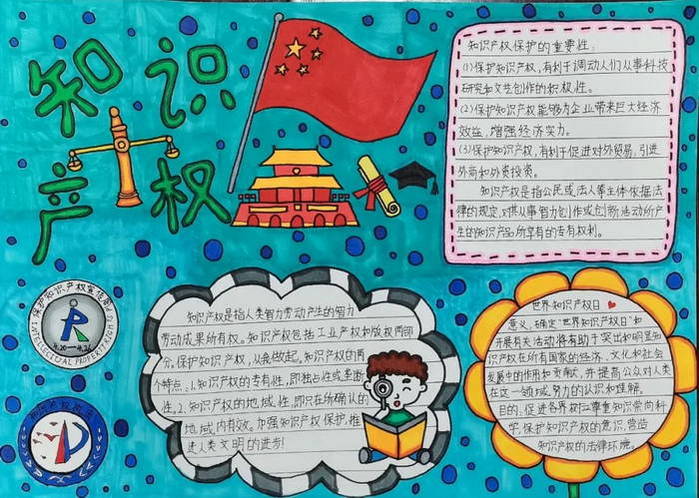 知识
产权
知识产权保护的重要性：
(1)保护知识产权，有利于调动人们从事科技
研究和文艺创作的积极性。
(2)保护知识产权能够为企业带来巨大经济
效益，增强经济实力。
(3)保护知识产权，有利于促进对外贸易，引进
外商和外资投资。
知识产权是指公民或法人等主体依据法
律的规定，对其从事智力创作或创新活动所产
生的知识产品所享有的专有权利。
保护知识产权宣传周
4.20—4.26
INTELLECTUAL PROPERTY RIGHT
知识产权是指人类智力劳动产生的智力
劳动成果所有权。知识产权包括工业产权和版权两部
分，保护知识产权，从我做起。知识产权的两
个特点：1.知识产权的专有性，即独占性或垄断
性。2.知识产权的地域性，即只在所确认的
地域内有效。加强知识产权保护，推
进人类文明的进步！
世界知识产权日
意义：确定“世界知识产权日”和
开展有关活动将有助于突出和明显知
识产权在所有国家的经济、文化和社会
发展中的作用和贡献，并提高公众对人类
在这一领域努力的认识和理解。
目的：促进各界树立尊重知识崇尚科
学，保护知识产权的意识，营造
知识产权的法律环境。